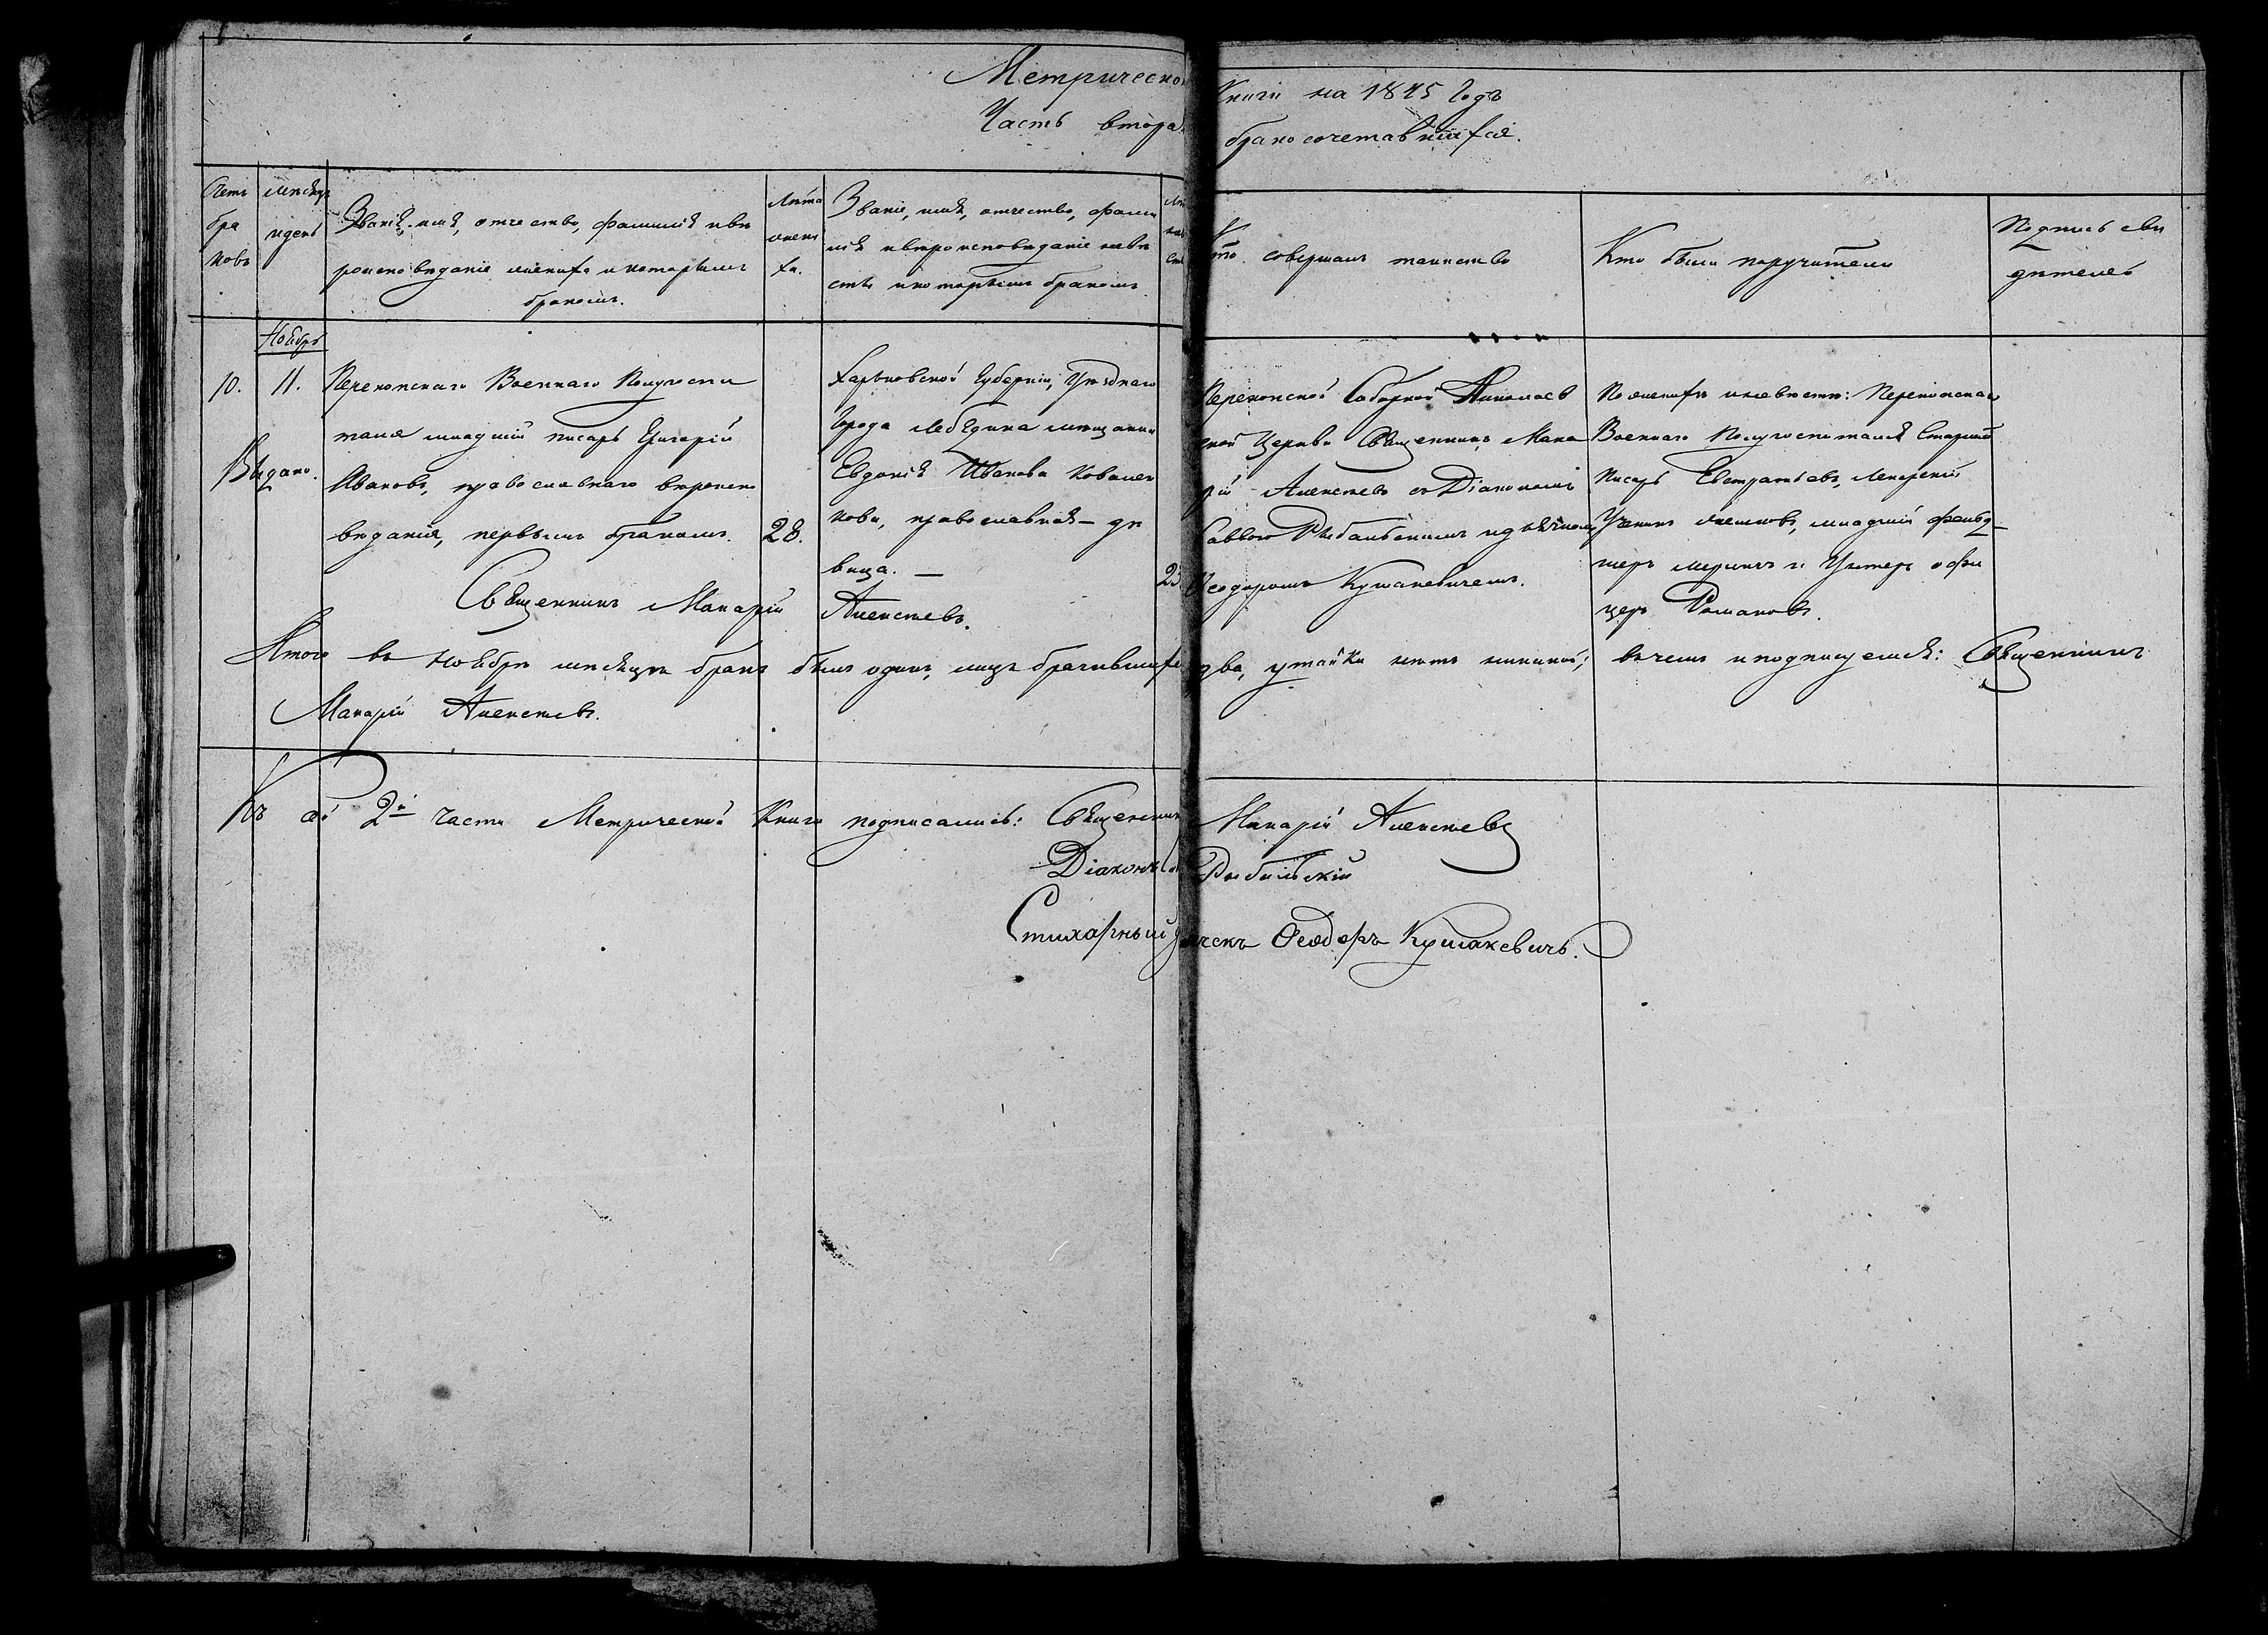 Метрическо Книги на 1845 Годъ
Часть втора брако сочетавшихся.
Счетъ
бра
ковъ
Месяцъ
и день
Званіе, имя, отчество, фамилія и вѣ
роисповѣданіе жениха и которымъ
бракомъ.
Лѣта
жени
ха.
Званіе, имя, отчество, фами
лія и вѣроисповѣданіе невѣ
сты и которымъ бракомъ
Кто совершалъ таинство
Кто были поручители
Подпись сви
дѣтелей
Ноябрь
10.
11.
Выдано.
Перекопскаго Военнаго Полугоспи
таля младшій писарь Григорій
Ивановъ, православнаго вѣроиспо
вѣданія, первымъ бракомъ.
28.
Харьковской Губерніи, Уѣзднаго
Города Лебедина мѣщанка
Евдокія Иванова Ковален
кова, православная – дѣ
вица. –
23
Перекопской Соборной Николаев
ской Церкви Священникъ Мака
рій Алексѣевъ со Діакономъ
Саввою Рыбальскимъ и дьячкомъ
Ѳеодоромъ Кушакевичемъ.
По женихѣ и невѣстѣ: Перекопскаго
Военнаго Полугоспиталя Старшій
Писарь Евстратьевъ, Лекарскій
Ученикъ младшій фельд–
шеръ и Унтеръ офи
церъ Романовъ.
Священникъ Макарій Алексѣевъ.
Итого въ Ноябрѣ месяцѣ бракъ былъ одинъ, лицъ бракившихся два, утайки нѣтъ никакой; въ чемъ и подписуемся: Священникъ
Макарій Алексѣевъ.
Къ сей 2й части Метрической Книги подписались: Священникъ Макарій Алексѣевъ
Діаконъ Рыбальскій
Стихарный дьячекъ Ѳеодоръ Кушакевичъ.